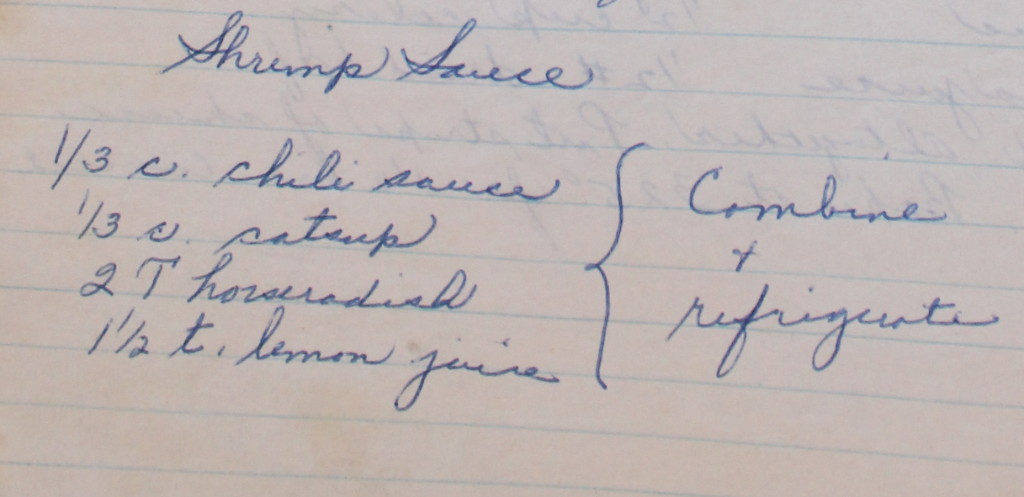 Shrimp Sauce
1/3 c. chili sauce
1/3 c. catsup
2 T horseradish
1 1/2 t. lemon juice
Combine
+
refrigerate